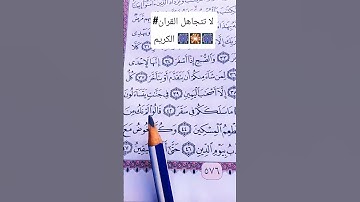 #لا تتجاهل القران
الكريم 🎆🎇🎆
وَالصُّبْحِ إِذَا أَسْفَرَ ٣٤ إِنَّهَا لَإِحْدَى
لِمَن شَاءَ مِنكُمْ أَن يَتَقَدَّمَ أَوْ يَتَأَخَّرَ ٣٧ كُلُّ
٣٨ إِلَّا أَصْحَٰبَ الْيَمِينِ ٣٩ فِي جَنَّٰتٍ يَتَسَاءَلُونَ
مَا سَلَكَكُمْ فِي سَقَرَ ٤٢ قَالُوا لَمْ نَكُ مِنَ
نُطْعِمُ الْمِسْكِينَ ٤٤ وَكُنَّا نَخُوضُ مَعَ
بِيَوْمِ الدِّينِ ٤٦ حَتَّىٰ
٥٧٦